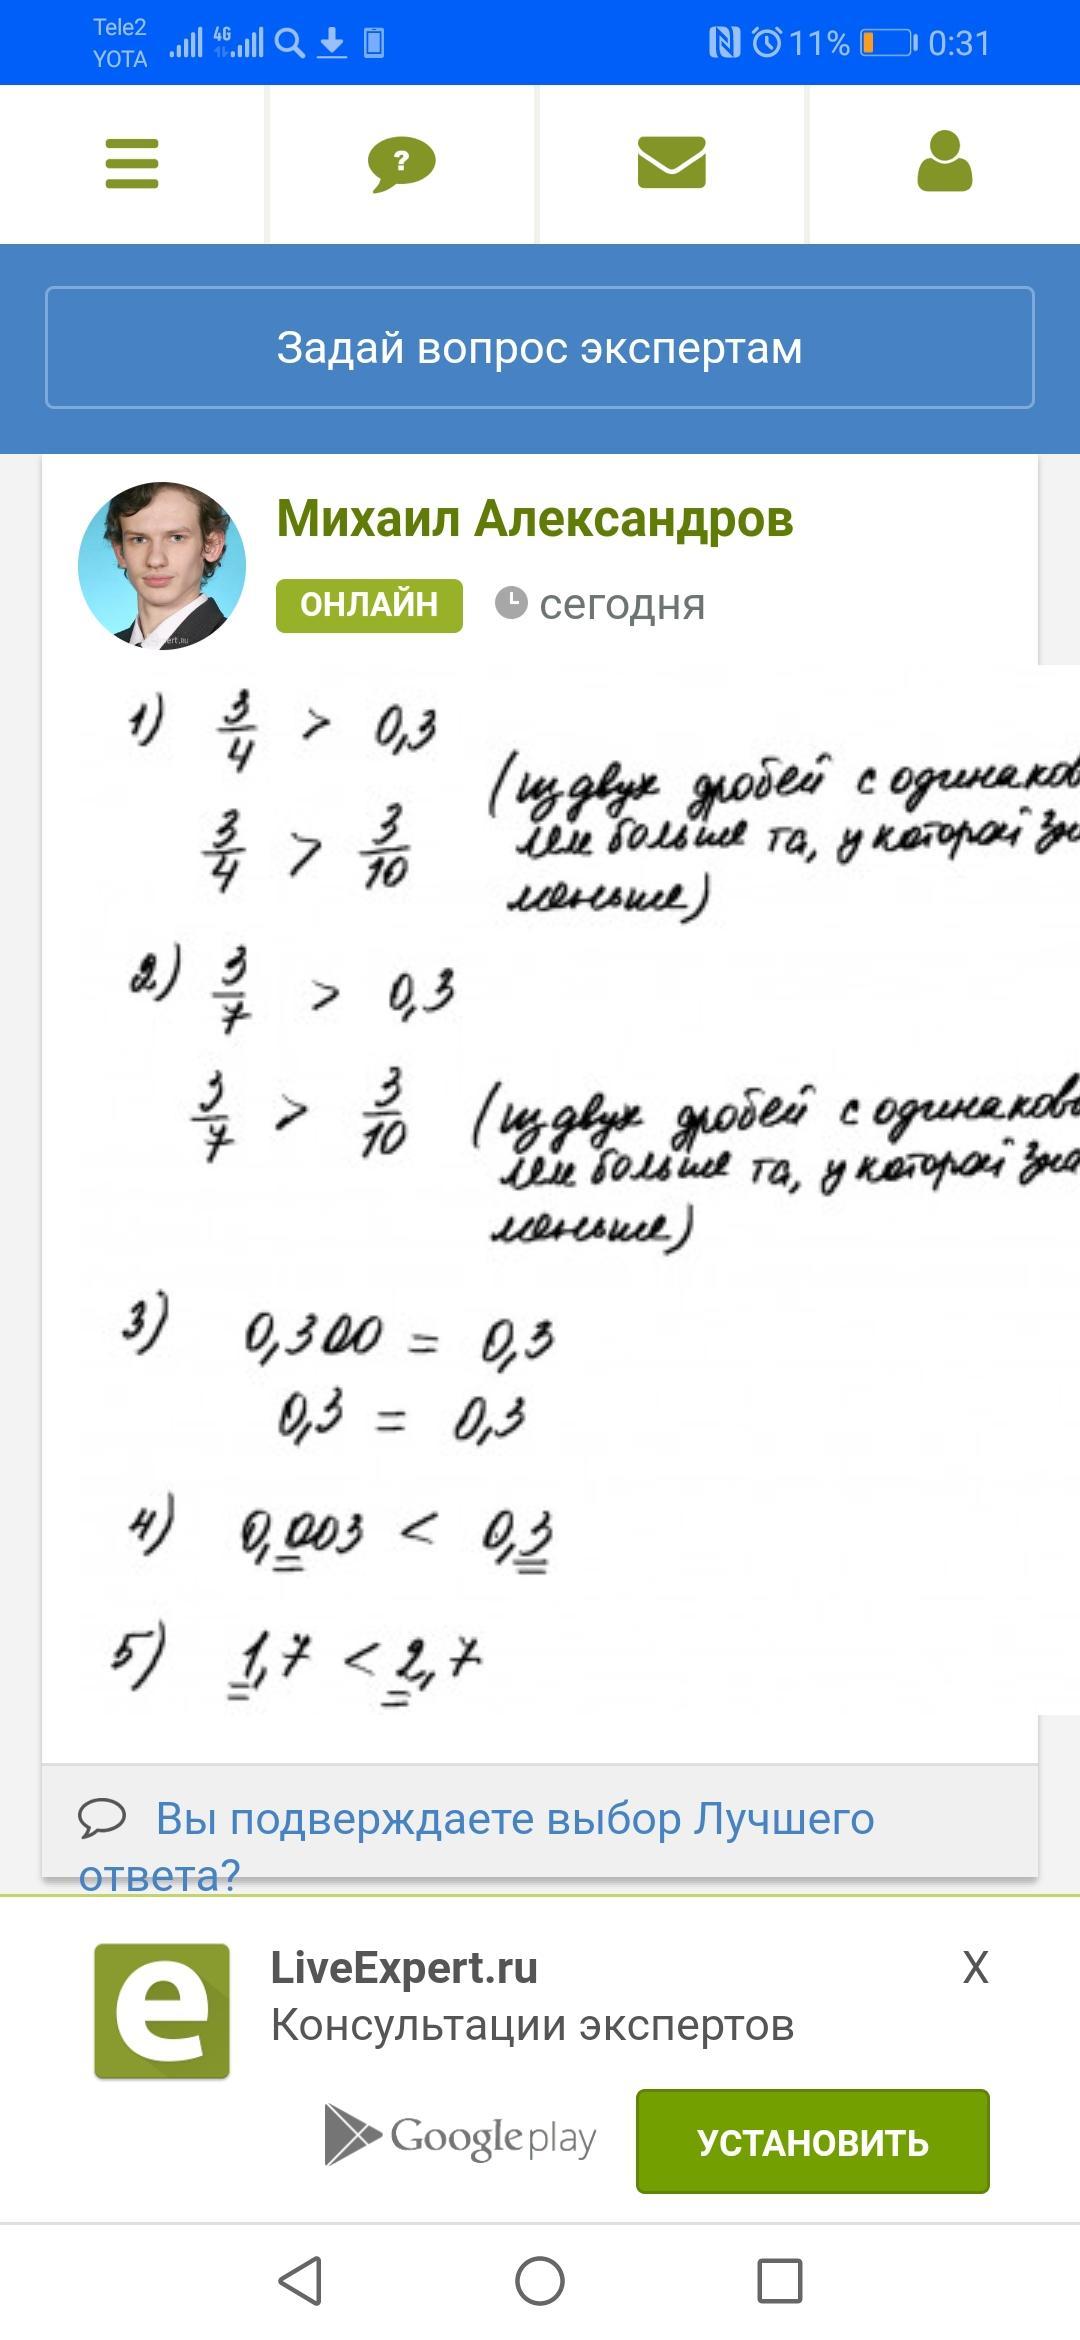 Tele2
YOTA
4G
11%
0:31
Задай вопрос экспертам
Михаил Александров
ОНЛАЙН
сегодня
1) 3/4 > 0,3
3/4 > 3/10
(из двух дробей с одинаков
лем больше та, у которой зна
меньше)
2) 3/7 > 0,3
3/7 > 3/10
(из двух дробей с одинаков
лем больше та, у которой зна
меньше)
3) 0,300 = 0,3
0,3 = 0,3
4) 0,003 < 0,3
5) 1,7 < 2,7
Вы подтверждаете выбор Лучшего
ответа?
e
LiveExpert.ru
X
Консультации экспертов
Google play
УСТАНОВИТЬ